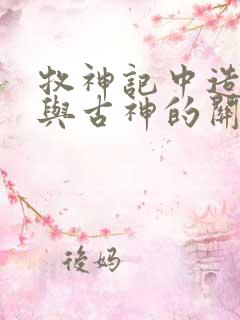 牧神記中造
與古神的關
後妈